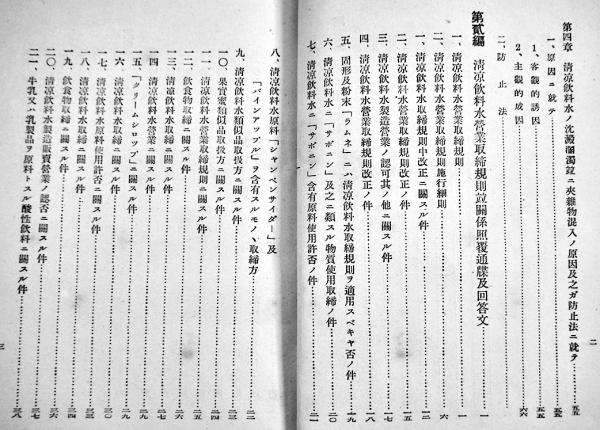 二
第四章 清凉飮料水ノ沈澱溷濁竝ニ夾雜物混入ノ原因及之ガ防止法ニ就テ
一、原因ニ就テ……五五
1 客觀的誘因……五五
2 主觀的成因……
二、防止法……六六
第貳編 淸凉飮料水營業取締規則竝關係照覆通牒及回答文
一、淸凉飮料水營業取締規則……一
一、淸凉飮料水營業取締規則施行細則
一、淸凉飮料水取締規則中改正ニ關スル件
二、淸凉飮料水營業取締規則改正ノ件
三、淸凉飮料水製造營業ノ認可其ノ他ニ關スル件
四、淸凉飮料水營業取締規則改正ノ件……一八
五、固形及粉末「ラムネ」ニハ淸凉飮料水取締規則ヲ適用スベキヤ否ノ件……一九
六、淸凉飮料水ニ「サポニン」及之ニ類スル物質使用取締ノ件
七、淸凉飮料水ニ「サポニン」含有原料使用許否ノ件……二一
八、淸凉飮料水原料「シャンペンサイダー」及
「パインアップル」ヲ含有スルモノヽ取締方……二二
九、淸凉飮料水類似品取扱方ニ關スル件……二三
一〇、果實蜜類似品取扱方ニ關スル件……二四
一一、淸凉飮料水營業取締規則ニ關スル件……二五
一二、飮食物取締ニ關スル件……二六
一三、淸凉飮料水取締ニ關スル件
一四、淸凉飮料水營業ニ關スル件
一五、「クリームシロップ」ニ關スル件……二九
一六、淸凉飮料水取締ニ關スル件……二九
一七、淸凉飮料水原料使用許否ニ關スル件……三〇
一八、淸凉飮料水取締ニ關スル件
一九、飮食物取締ニ關スル件
二〇、淸凉飮料水製造販賣營業ノ認否ニ關スル件……三七
二一、牛乳又ハ乳製品ヲ原料トスル酸性飮料ニ關スル件……三八
三